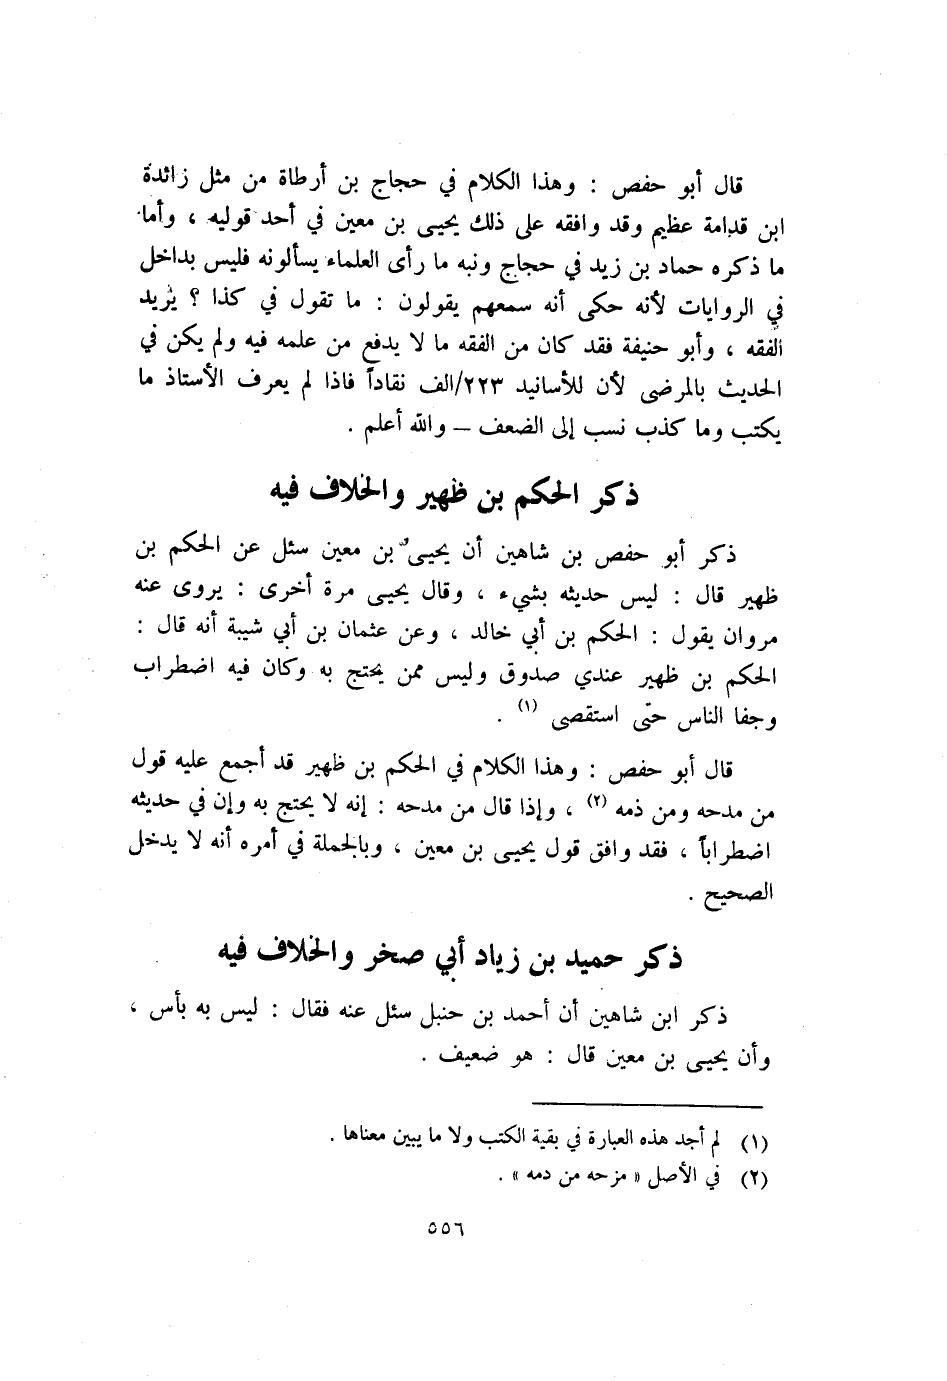 قال أبو حفص : وهذا الكلام في حجاج بن أرطاة من مثل زائدة
ابن قدامة عظيم وقد وافقه على ذلك يحيى بن معين في أحد قوليه ، وأما
ما ذكره حماد بن زيد في حجاج ونبه ما رأى العلماء يسألونه فليس بداخل
في الروايات لأنه حكى أنه سمعهم يقولون : ما تقول في كذا ؟ يُريد
الفقه ، وأبو حنيفة فقد كان من الفقه ما لا يدفع من علمه فيه ولم يكن في
الحديث بالمرضى لأن للأسانيد ٢٢٣/الف نقاداً فاذا لم يعرف الأستاذ ما
يكتب وما كذب نسب إلى الضعف – والله أعلم .
ذكر الحكم بن ظهير والخلاف فيه
ذكر أبو حفص بن شاهين أن يحيى بن معين سئل عن الحكم بن
ظهير قال : ليس حديثه بشيء ، وقال يحيى مرة أخرى : يروى عنه
مروان يقول : الحكم بن أبي خالد ، وعن عثمان بن أبي شيبة أنه قال :
الحكم بن ظهير عندي صدوق وليس ممن يحتج به وكان فيه اضطراب
وجفا الناس حتّى استقصى (١) .
قال أبو حفص : وهذا الكلام في الحكم بن ظهير قد أجمع عليه قول
من مدحه ومن ذمه (٢) ، وإذا قال من مدحه : إنه لا يحتج به وإن في حديثه
اضطراباً ، فقد وافق قول يحيى بن معين ، وبالجملة في أمره أنه لا يدخل
الصحيح .
ذكر حميد بن زياد أبي صخر والخلاف فيه
ذكر ابن شاهين أن أحمد بن حنبل سئل عنه فقال : ليس به بأس ،
وأن يحيى بن معين قال : هو ضعيف .
(١) لم أجد هذه العبارة في بقية الكتب ولا ما يبين معناها .
(٢) في الأصل « مزحه من دمه » .
٥٥٦